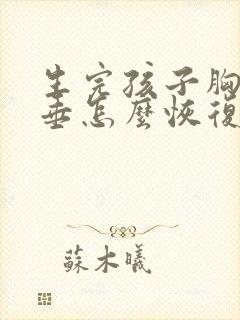 生完孩子胸
垂怎麼恢復
蘇木曦